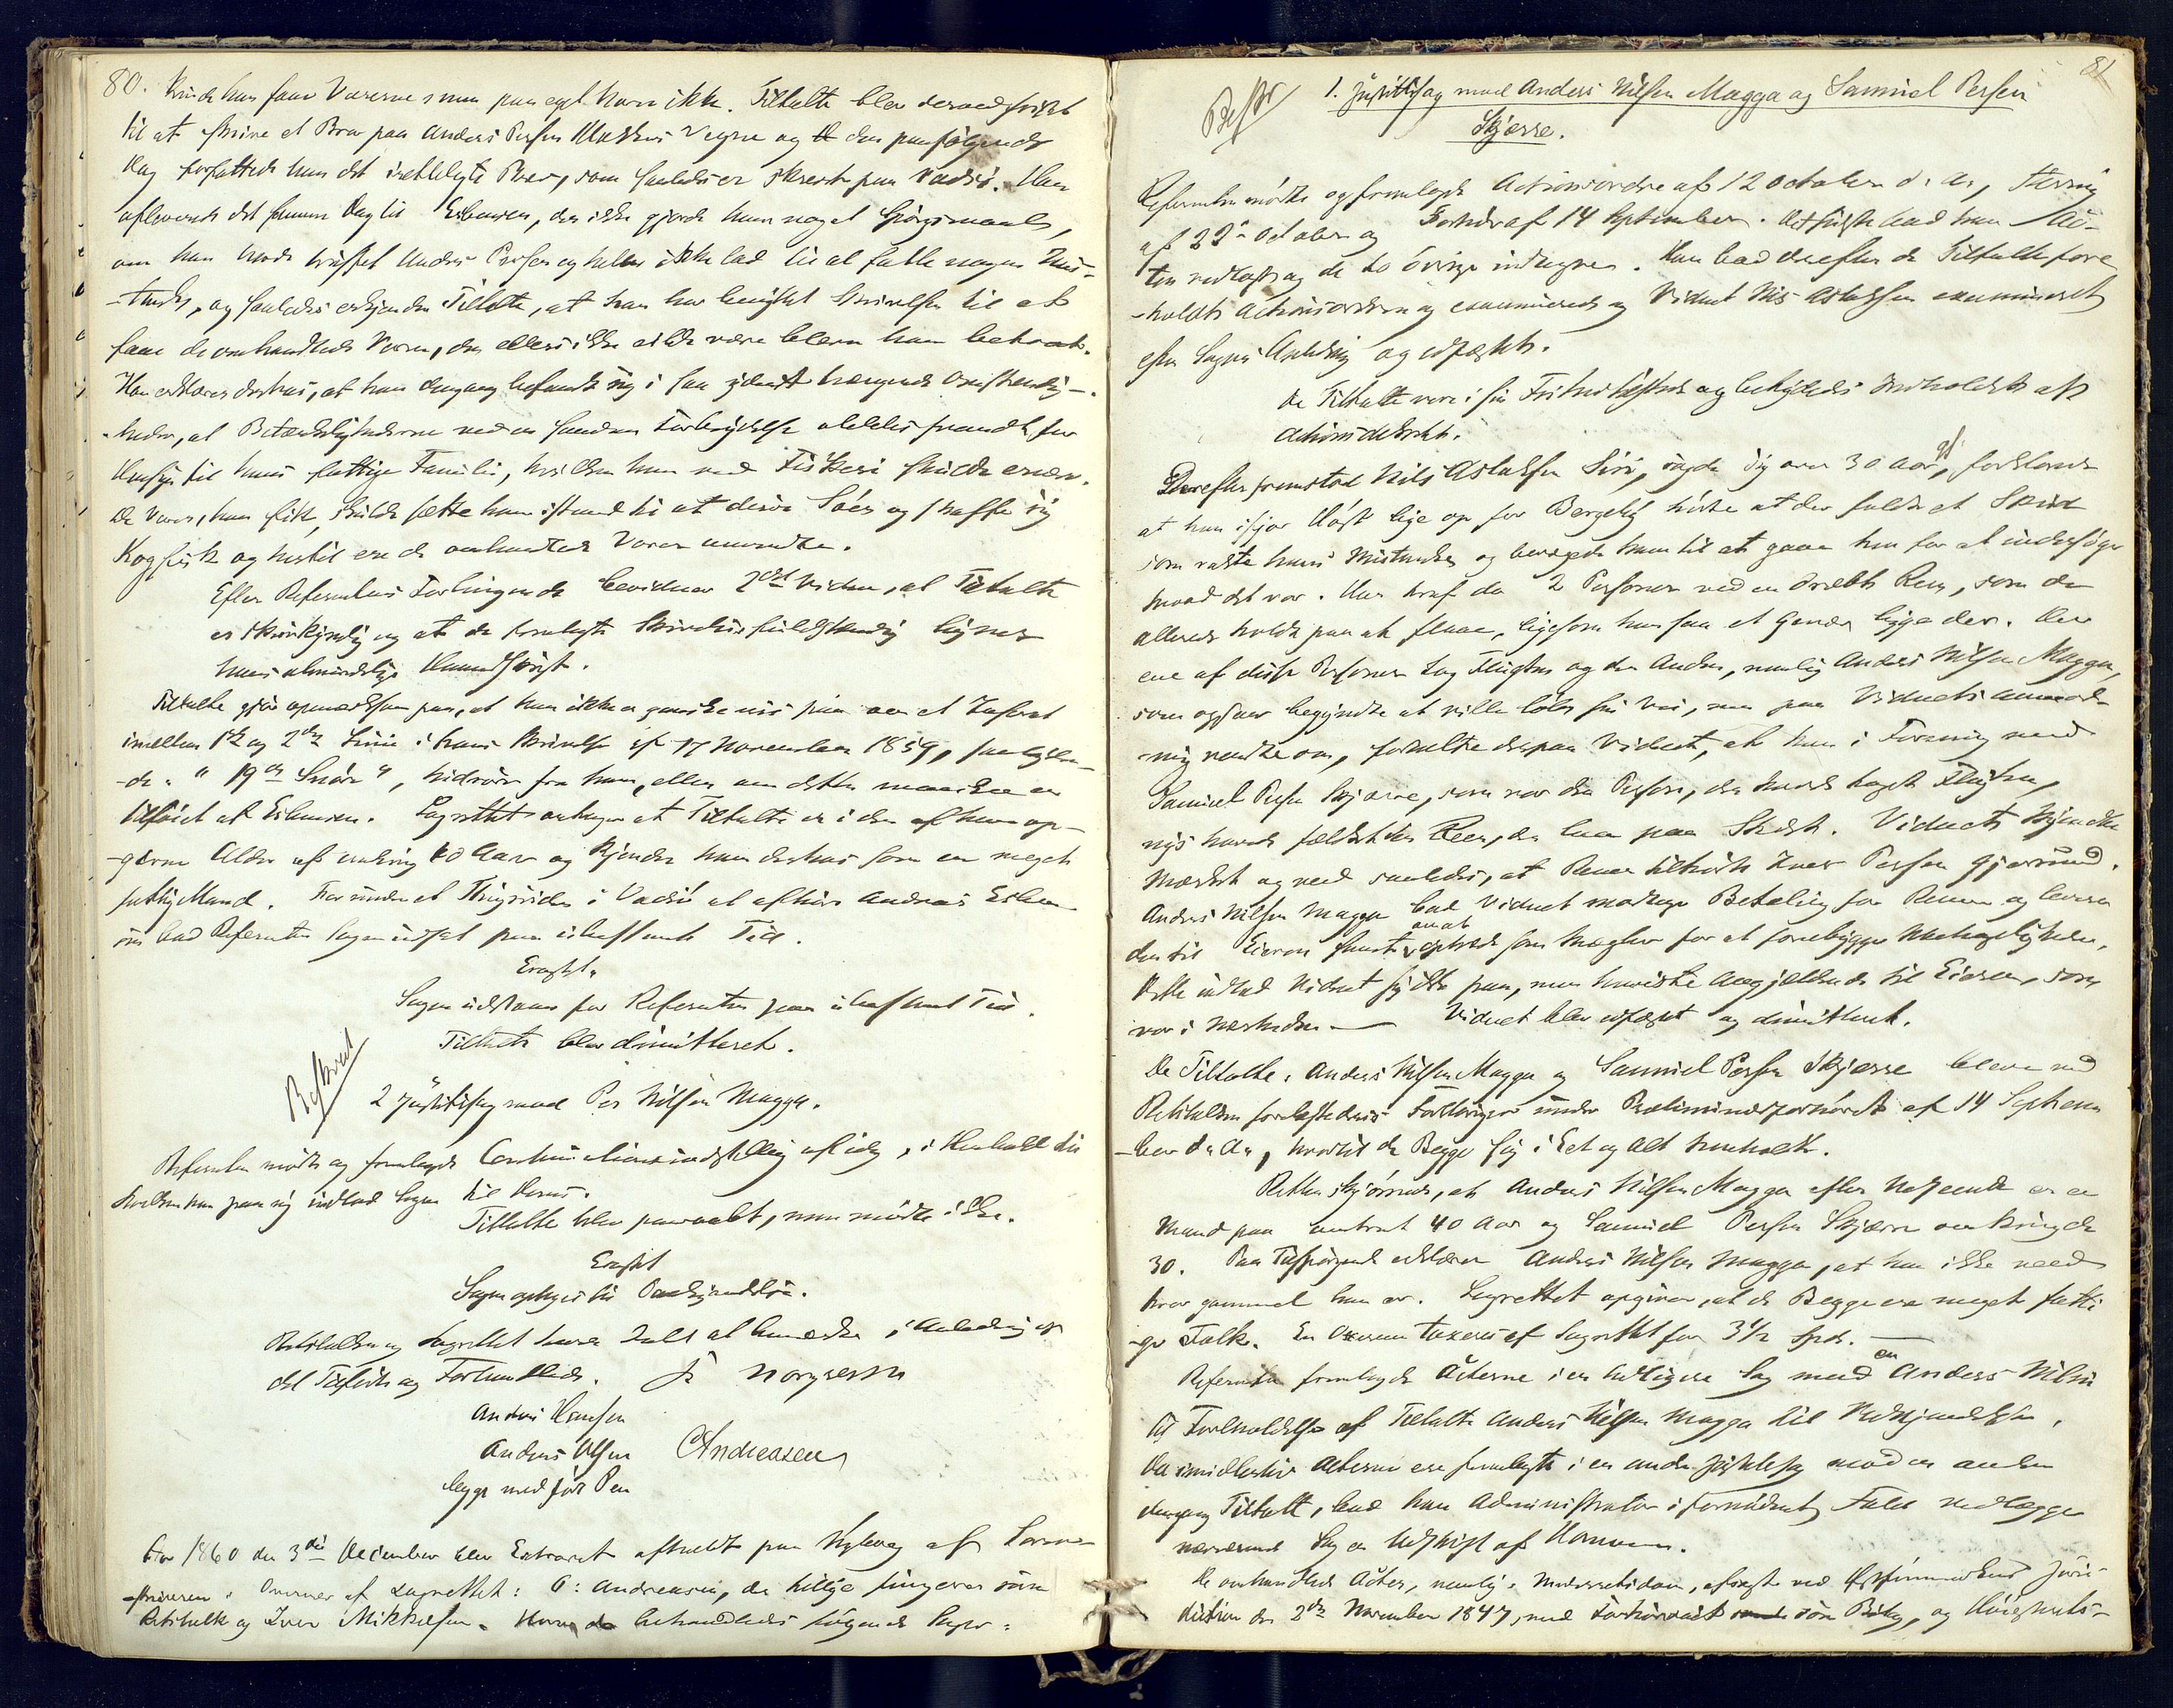 80.
kunde han faae Varerne, men paa eget Navn ikke. Tiltalte blev derved fristet
til at skrive et Brev paa Anders Persen Vegne og den paafølgende
Dag forfattede han det fremlagte Brev, som saaledes er skrevet paa Vadsö. Han
afleverede det samme Dag til Esbensen, der ikke gjorde ham noget Spörgsmaal,
om han havde truffet Anders Persen og heller ikke lod til at fatte nogen Mis-
-tanke, og saaledes erkjender Tiltalte, at han har benyttet Skrivelsen til at
faae de omhandlede Varer, der ellers ikke vilde være bleven ham betroet.
Han erklærer derhos, at han dengang befandt sig i saa yderst trængende Omstændig-
-heder, at Betænkelighederne ved en saadan Forbrydelse aldeles for
Hensyn til hans fattige Familie, hvilken han ved Fiskeri skulde ernære.
De Varer, han fik, skulde sætte ham istand til at drive Söen og skaffe sig
Kogfisk og hertil ere de omhandlede Varer anvendte.
Efter Referentens Forlangende bevidner 2det Vidne, at Tiltalte
er skrivkyndig og at de fremlagte Skrivelser fuldstændig ligner
hans almindelige Haandskrift.
Tiltalte gjör opmærksom paa, at han ikke er ganske vis paa om et Tilföiet
imellem 1ste og 2den Linie i hans Skrivelse af 17 November 1859, saalyden-
-de: " 19 Snöre ", hidrörer fra ham, eller om dette maaskee er
tilföiet af Esbensen. Lagrettet antager at Tiltalte er i den af ham op-
-givne Alder af omkring 40 Aar og kjender ham derhos som en meget
fattig Mand. For under et Thingvidne i Vadsö at afhöre Andreas Esben-
sen bad Referenten Sagen udsat paa ubestemt Tid.
Eragtet.
Sagen udstaaer for Referenten paa ubestemt Tid.
Tiltalte blev dimitteret.
Beskrevet
2 Justitssag mod Per Nilsen Magga.
Referenten mödte og fremlagde Continuationsindstilling af idag, i Henhold til
hvilken han paa ny indlod Sagen til Doms.
Tiltalte blev paaraabt, men mödte ikke.
Eragtet
Sagen optages til Paakjendelse.
Retsbetjenten og Lagrettet havde Intet at bemærke i Anledning af
det Tilförte og Forhandlede.
Anders Hansen
Anders Olsen CAndreasen
begge med fört Pen
Aar 1860 den 3die December blev Extraret afholdt paa Nyborg af Soren-
-skriveren i Overvær af Lagrettet: C: Andreasen, der tillige fungerer som
Retstolk og Iver Mikkelsen. Hvorda behandledes fölgende Sager:
81
Beskr
1. Justitssag mod Anders Nilsen Magga og Samuel Persen
Skjærre.
Referenten mödte og fremlagde Actionsordre af 12 October d. A., Stevning
af 22de October og Forhör af 14 September. Det förste bad han Ac-
ten vedlagt og de to övrige indtagne. Han bad derefter de Tiltalte fore-
-holdt Actionsordren og examinerede og Vidnet Nils Aslaksen examineret
efter Sagens Anledning og edfæstet.
De Tiltalte vare i fri Tilstand tilstede og betydedes Indholdet af
Actionsdekretet.
Derefter fremstod Nils Aslaksen Siri, sagde sig over 30 Aar gl,, forklarede
at han ifjor Höst lige op for Bergeby hörte at der faldt et Skud
som vakte hans Mistanke og bevægede ham til at gaae hen for at undersöge
hvad det var. Han traf da 2 Personer ved en dræbt Reen, som de
allerede holdt paa at flaae, ligesom han saa et Gevær ligge der. Den
ene af disse Personer tog Flugten og den Anden, nemlig Anders Nilsen Magga,
som ogsaa begyndte at ville löbe sin Vei, men paa Vidnets anmod-
-ning vendte om, fortalte derpaa Vidnet, at han i Forening med
Samuel Persen Skjærre, som var den Person, der havde taget Flugten,
nys havde fældet den Reen, der laae paa Stedet. Vidnet kjendte
Mærket og veed saaledes, at Renen tilhörte Iver Persen Gjermund.
Anders Nilsen Magga bad Vidnet modtage Betaling for Renen og levere
den til Eieren samt optræde som Mægler for at forebygge Ubehageligheder.
Dette indlod Vidnet sig ikke paa, men henviste Angjældende til Eieren, som
var i Nærheden. — Vidnet blev edfæstet og dimitteret.
De Tiltalte, Anders Nilsen Magga og Samuel Persen Skjærre bleve ved
Retstolken forelæste deres Forklaringer under Præliminærforhöret af 14 Septem-
-ber d. A., hvortil de Begge sig i Eet og Alt henholdt.
Retten skjönnede, at Anders Nilsen Magga efter Udseende er en
Mand paa omtrent 40 Aar og Samuel Persen Skjærre omkring de
30. Paa Tilspörgende erklærer Anders Nilsen Magga, at han ikke veed
hvor gammel han er. Lagrettet opgiver, at de Begge ere meget fatti-
-ge Folk. En taxeres af Lagrettet for 3 1/2 Spd. —
Referenten fremlagde Acterne i en tidligere Sag mod en Anders Nilsen
til Foreholdelse af Tiltalte Anders Nilsen Magga til Vedkjendelse.
Da imidlertid Acterne ere fremlagte i en anden Justitssag mod en anden
dengang Tiltalt, bad han Administrator i fornödent Fald vedlægge
nærværende Sag en Udskrift af Dommen.
De omhandlede Acter, nemlig: Underretsdom, afsagt ved Östfinmarkens Juris-
diction den 2den November 1847, med Forhörsact som Bilag, og Höiesterets-